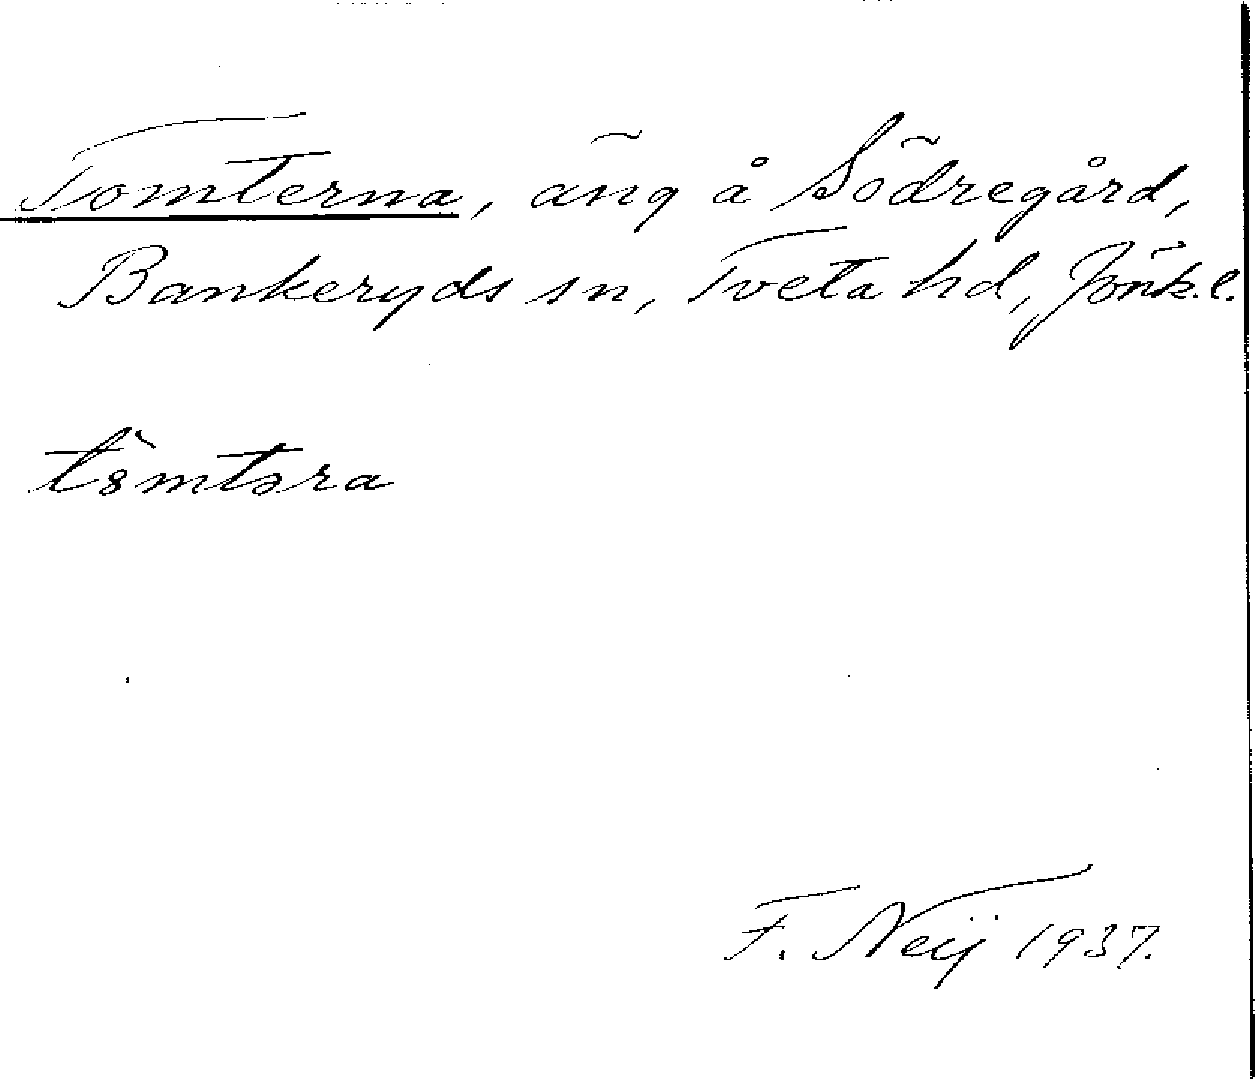 Tomterna, äng å Södregård,
Bankeryds sn, Tveta hd, Jönk.l.
tȣ̀mtəra
F. Neij 1937.